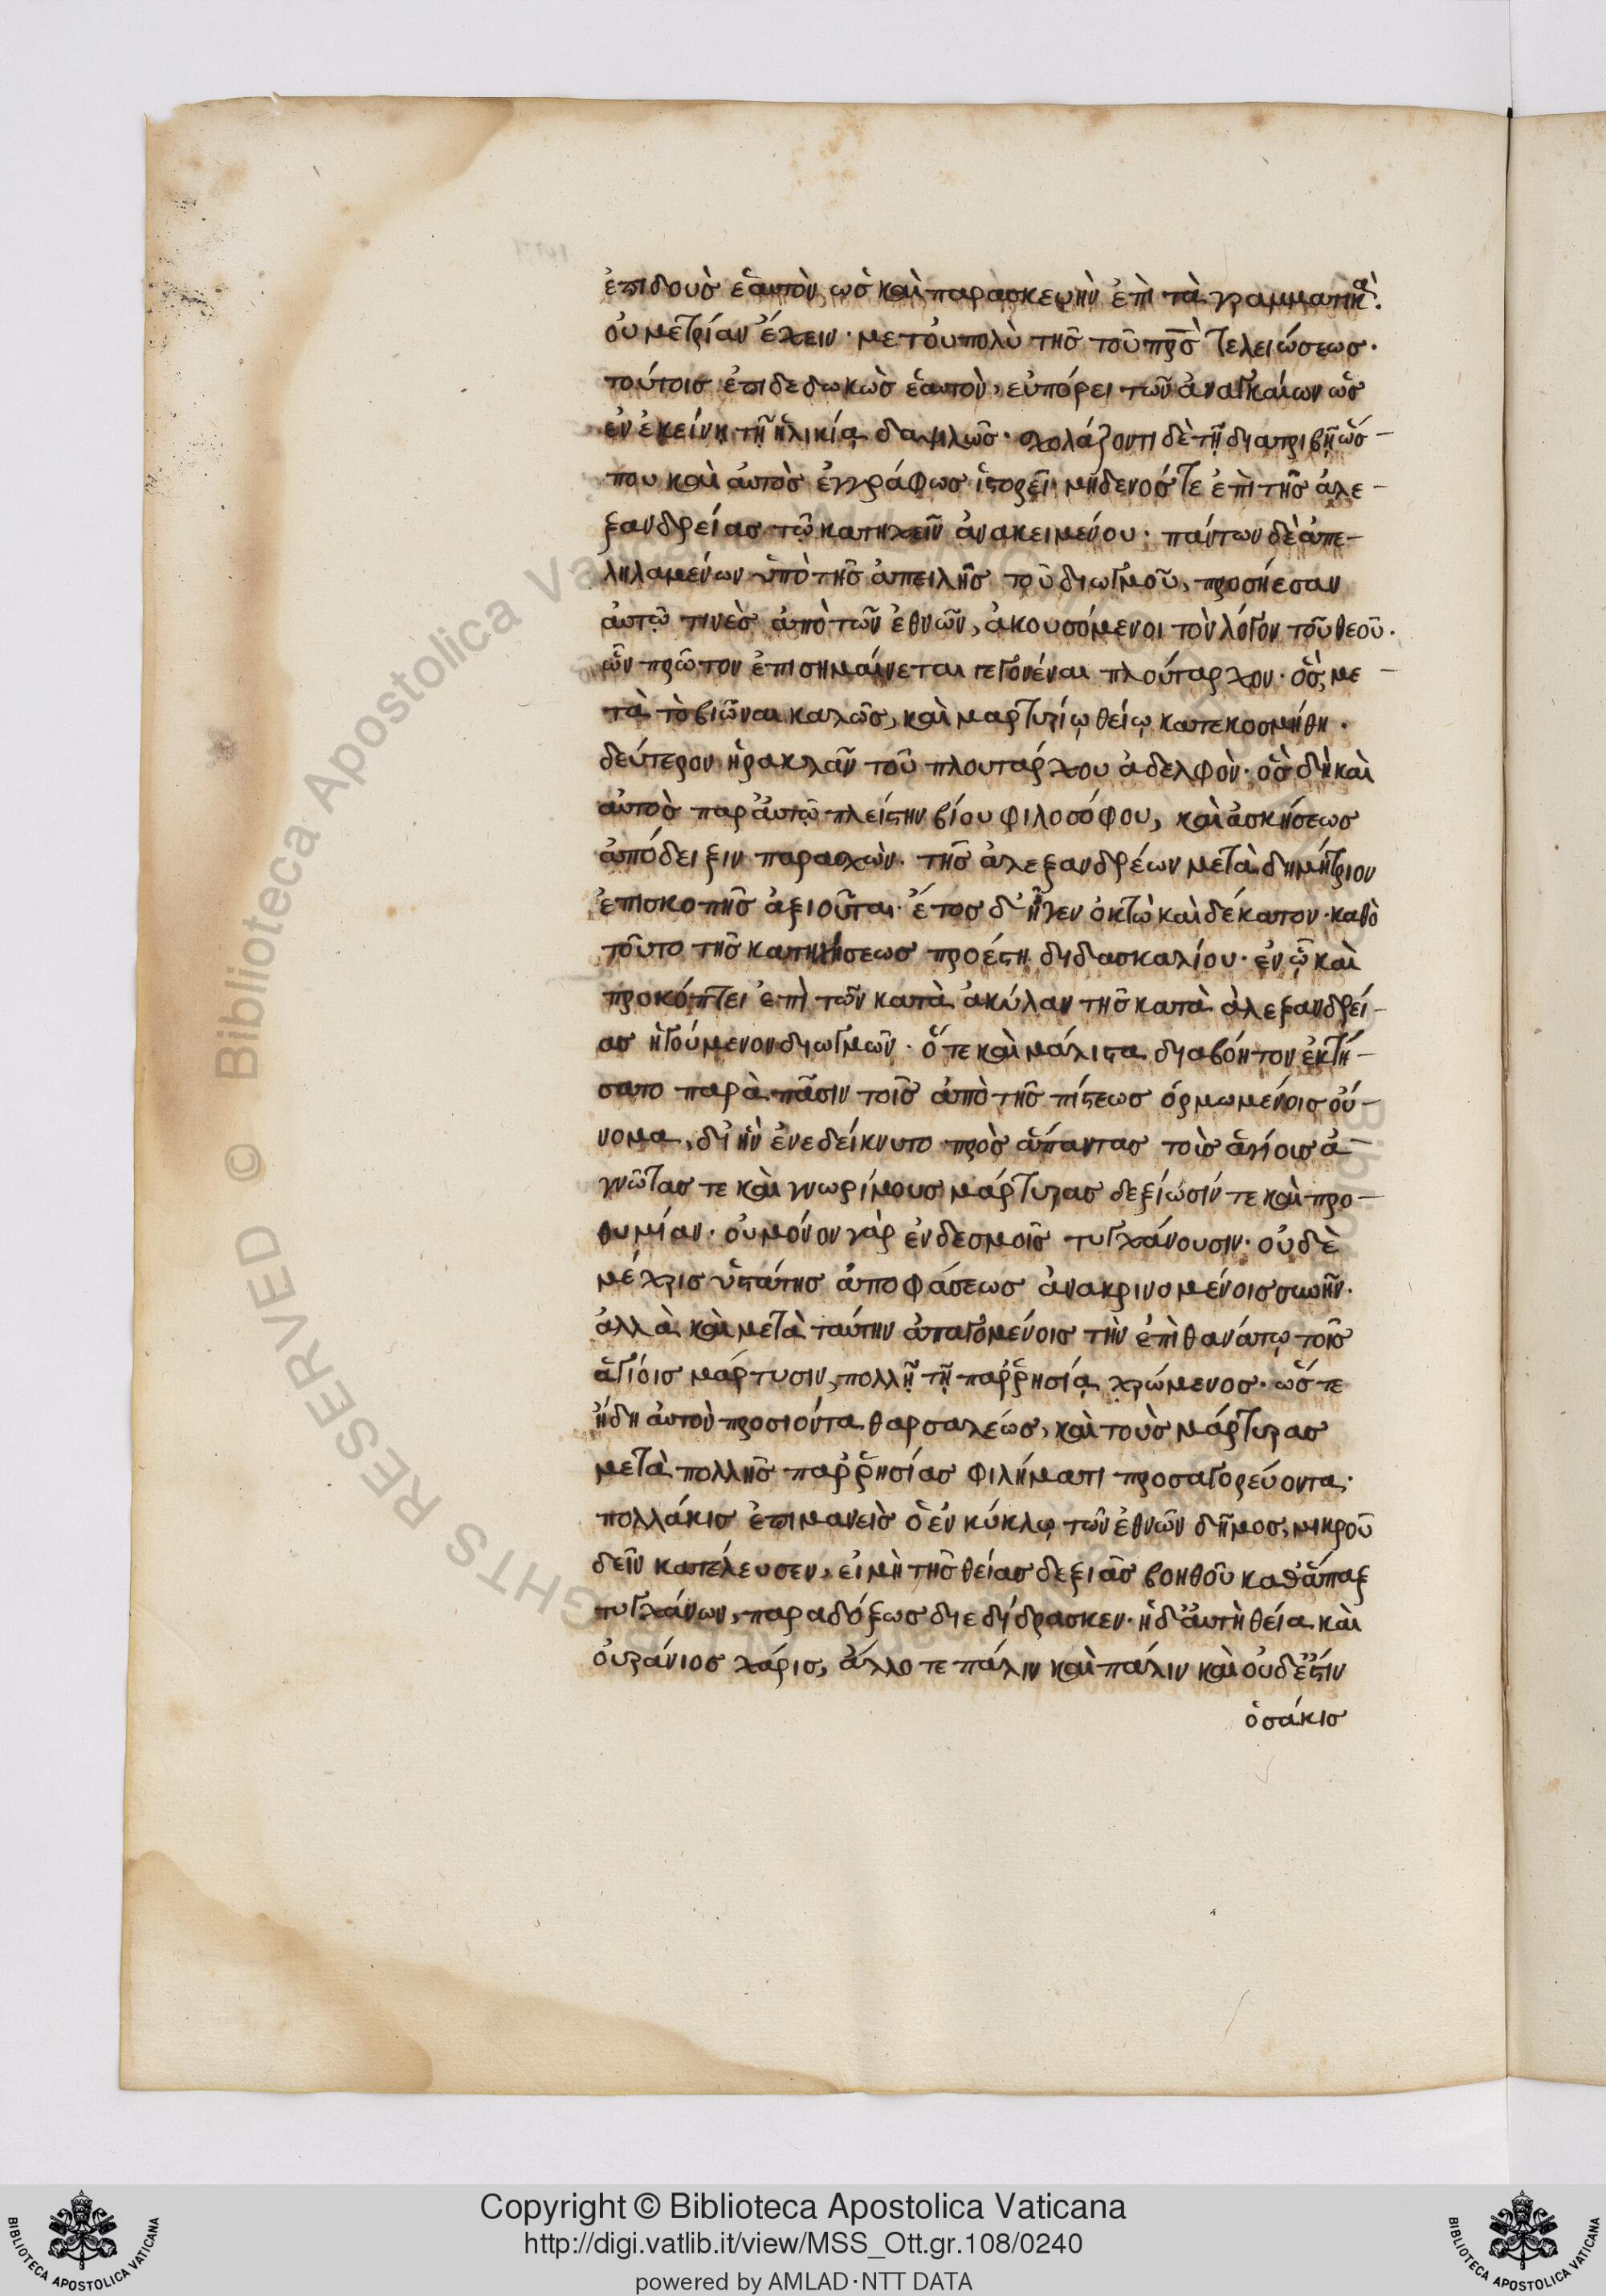 ἐπιδοὺσ ἑαυτὸν, ὡσ καὶ παρασκευὴν ἐπὶ τὰ γραμματικὰ.
οὐ μετρίαν ἔχειν· μετ' οὐ πολὺ τῆσ τοῦ πρσ̅ τελειώσεωσ·
τούτοισ ἐπιδεδωκὼσ ἑαυτὸν, εὐπόρει τῶν ἀναγκαίων ὡσ
ἐν ἐκείνῃ τῇ ἡλικίᾳ δαψιλῶσ· σχολάζοντι δὲ τῇ διατριβῇ ὥσ-
που καὶ αὐτὸσ ἐγγράφωσ ἱστορεῖ· μηδενόσ τε ἐπὶ τῆσ ἀλε-
ξανδρείασ τῷ κατηχεῖν ἀνακειμένου· πάντων δὲ ἀπε-
ληλαμένων ὑπὸ τῆσ ἀπειλῆσ τοῦ διωγμοῦ, προσήεσαν
αὐτῷ τινὲσ ἀπὸ τῶν ἐθνῶν, ἀκουσόμενοι τὸν λόγον τοῦ θεοῦ·
ὧν πρῶτον ἐπισημαίνεται γεγονέναι πλούταρχον· ὃσ, με-
τὰ τὸ βιῶναι καλῶσ, καὶ μαρτυρίῳ θείῳ κατεκοσμήθη·
δεύτερον ἡρακλᾶν τοῦ πλουτάρχου ἀδελφὸν· ὃσ δὴ καὶ
αὐτὸσ παρ' αὐτῷ πλείστην βίου φιλοσόφου, καὶ ἀσκήσεωσ
ἀπόδειξιν παρασχὼν· τῆσ ἀλεξανδρέων μετὰ δημήτριον
ἐπισκοπῆσ ἀξιοῦται· ἔτοσ δ' ἦγεν ὀκτὼ καὶ δέκατον· καθὸ
τοῦτο τῆσ κατηχήσεωσ προέστη διδασκαλίου· ἐν ᾧ καὶ
προκόπτει ἐπὶ τῶν κατὰ ἀκύλαν τῆσ κατὰ ἀλεξανδρεί-
ασ ἡγούμενον διωγμῶν· ὅτε καὶ μάλιστα διαβόητον ἐκτή-
σατο παρὰ πᾶσιν τοῖσ ἀπὸ τῆσ πίστεωσ ὁρμωμένοισ οὔ-
νομα, δι' ἣν ἐνεδείκνυτο πρὸσ ἅπαντασ τοῖσ ἁγίοισ ἀ-
γνῶτασ τε καὶ γνωρίμουσ μάρτυρασ δεξίωσίν τε καὶ προ-
θυμίαν· οὐ μόνον γὰρ ἐν δεσμοῖσ τυγχάνουσιν· οὐδὲ
μέχρισ ὑστάτησ ἀποφάσεωσ ἀνακρινομένοισ συνῆν·
ἀλλὰ καὶ μετὰ ταύτην ἀπαγομένοισ τὴν ἐπὶ θανάτῳ τοῖσ
ἁγίοισ μάρτυσιν, πολλῇ τῇ παῤῥησίᾳ χρώμενοσ· ὥστε
ἤδη αὐτὸν προσιόντα θαρσαλέωσ, καὶ τοὺσ μάρτυρασ
μετὰ πολλῆσ παῤῥησίασ φιλήματι προσαγορεύοντα·
πολλάκισ ἐπιμανεὶσ ὁ ἐν κύκλῳ τῶν ἐθνῶν δῆμοσ, μικροῦ
δεῖν κατέλευσεν, εἰ μὴ τῆσ θείασ δεξιᾶσ βοηθοῦ καθάπαξ
τυγχάνων, παραδόξωσ διεδίδρασκεν· ἡ δ' αὐτὴ θεία καὶ
οὐράνιοσ χάρισ, ἄλλοτε πάλιν καὶ πάλιν καὶ οὐδ' ἔστιν
ὁσάκισ
Copyright © Biblioteca Apostolica Vaticana
http://digi.vatlib.it/view/MSS_Ott.gr.108/0240
powered by AMLAD·NTT DATA